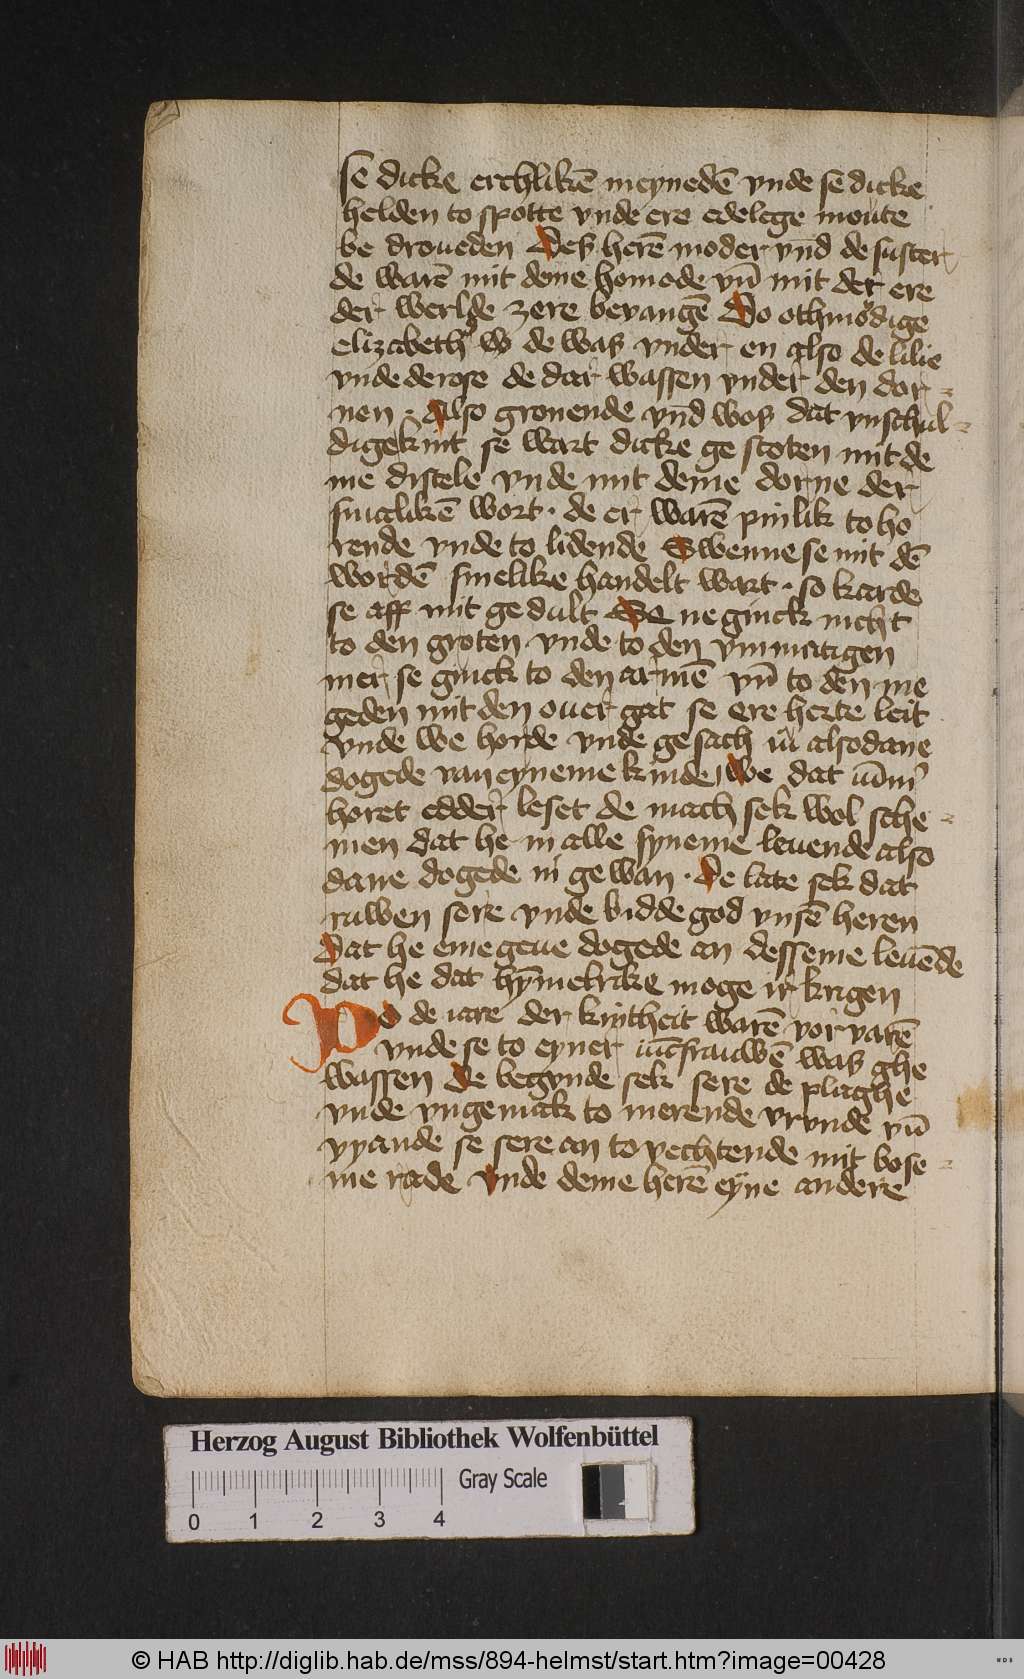 se dicke erchlikē meynedē vnde se dicke
helden to spotte vnde ere edelege moute
be droueden Des herē moder vnd de suster
de warē mit deme homode vn̄ mit der ere
der werlde zere bevangē Do othmödige
elizabeth de was vnder en also de lilie
vnde de rose de dar wassen vnder den dor-
nen · Also gronende vnd wos dat vnschul-
dige kint se wart dicke ge stoten mit de
me distele vnde mit deme dorne der
smalikē wort · de er warē pinlik to ho
rende vnde to lidende Swenne se mit dē
wordē smelike handelt wart · so karde
se aff mit ge dult Se ne ginck nicht
to den groten vnde to den vnmatigen
mer se ginck to den armē vn̄ to den me
geden mit den ouer gat se ere herte leit
vnde we horde vnde ge sach iu alsodane
dogede van eyneme kinde we dat
horet edder leset de mach sek wol sche-
men dat he in alle syneme leuende also
dane dogede ni ge wan · De late sek dat
ruwen sere vnde bidde god vnsē heren
Dat he eme geue dogede an desseme leuēde
dat he dat hȳmelrike moge ir krigen
Do de iare der kintheit warē vor varē
vnde se to eyner iūcfrauwē was ghe
wassen De begynde sek sere de plaghe
vnde vngemak to merende vrvnde vn̄
vyande se sere an to vechtende mit bose-
me rade vnde deme herē eyne andere
Herzog August Bibliothek Wolfenbüttel
Gray Scale
0 1 2 3 4
© HAB http://diglib.hab.de/mss/894-helmst/start.htm?image=00428